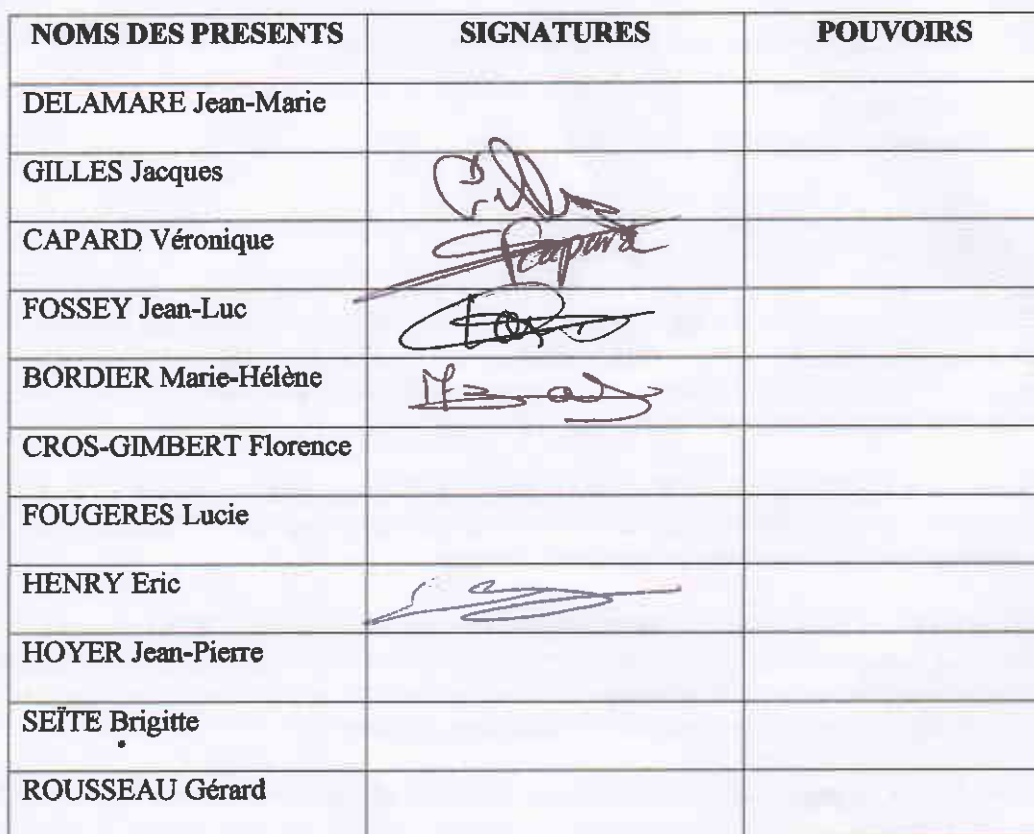 NOMS DES PRESENTS SIGNATURES POUVOIRS
DELAMARE Jean-Marie
GILLES Jacques
CAPARD Véronique Capard
FOSSEY Jean-Luc
BORDIER Marie-Hélène
CROS-GIMBERT Florence
FOUGERES Lucie
HENRY Eric
HOYER Jean-Pierre
SEÏTE Brigitte
ROUSSEAU Gérard